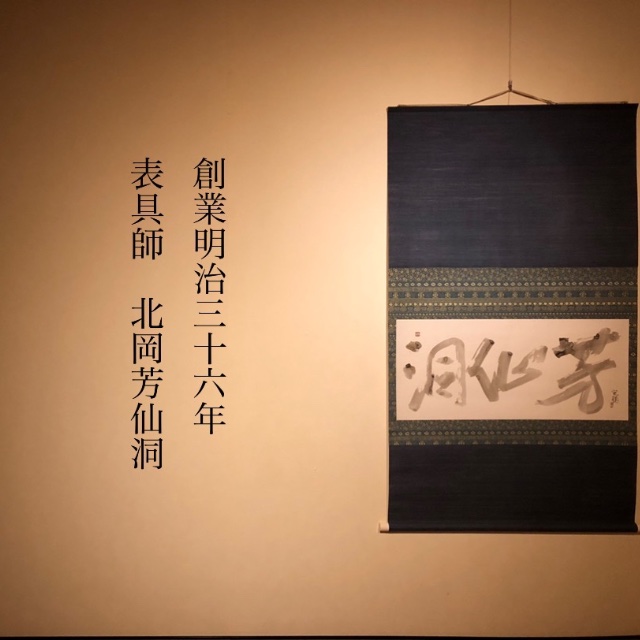 芳仙洞
創業明治三十六年
表具師　北岡芳仙洞